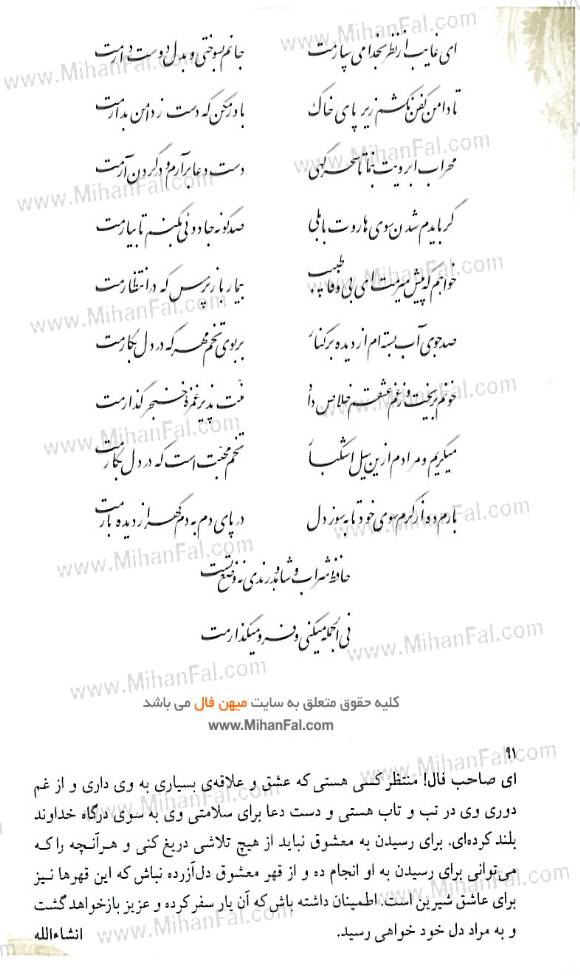 ای غایب از نظر بخدا می سپارمت جانم بسوختی و بدل دوست دارمت
تا دامن کفن نکشم زیر پای خاک باور مکن که دست ز دامن بدارمت
محراب ابرویت بنما تا سحرگهی دست دعا برآرم و در گردن آرمت
گر بایدم شدن سوی هاروت بابلی صد گونه جادوئی بکنم تا بیارمت
خواهم که پیش میرمت ای بی وفا طبیب بیمار باز پرس که در انتظارمت
صد جوی آب بسته ام از دیده بر کنار بر بوی تخم مهر که در دل بکارمت
خونم بریخت و ز غم عشقم خلاص داد منت پذیر غمزه خنجر گذارمت
میگریم و مرادم ازین سیل اشکبار تخم محبت است که در دل بکارمت
بارم ده از کرم سوی خود تا به سوز دل در پای دم به دم گهر از دیده بارمت
حافظ شراب و شاهد و رندی نه وضع تست
فی الجمله میکنی و فرو میگذارمت
کلیه حقوق متعلق به سایت میهن فال می باشد
www.MihanFal.com
۹۱
ای صاحب فال! منتظر کسی هستی که عشق و علاقه‌ی بسیاری به وی داری و از غم
دوری وی در تب و تاب هستی و دست دعا برای سلامتی وی به سوی درگاه خداوند
بلند کرده‌ای. برای رسیدن به معشوق نباید از هیچ تلاشی دریغ کنی و هر آنچه را که
می‌توانی برای رسیدن به او انجام ده و از قهر معشوق دل‌آزرده نباش که این قهرها نیز
برای عاشق شیرین است. اطمینان داشته باش که آن یار سفر کرده و عزیز بازخواهد گشت
و به مراد دل خود خواهی رسید. انشاءالله